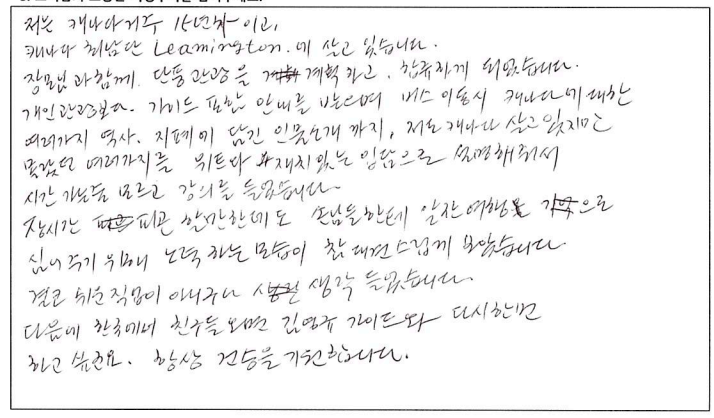 저는 캐나다거주 15년차 이고,
캐나다 최남단 Leamington. 에 살고 있습니다.
장모님과 함께. 단풍관광을 계획하고, 합류하게 되었습니다.
개인관광보다. 가이드 포함 안내를 받으며 버스 이동시 캐나다에 대한
여러가지 역사. 지폐에 담긴 인물소개 까지, 저도 캐나다 살고 있지만
몰랐던 여러가지를 위트와 재치있는 입담으로 설명해줘서
시간 가는줄 모르고 강의를 들었습니다.
장시간 피곤 할만한데도 손님들한테 알찬여행으로
심어주기 위해 노력하는 모습이 참 대견스럽게 보았습니다
결코 쉬운직업이 아니구나 생각 들었습니다.
다음에 한국에서 친구들오면 김영규 가이드와 다시한번
하고 싶군요. 항상 건승을 기원합니다.